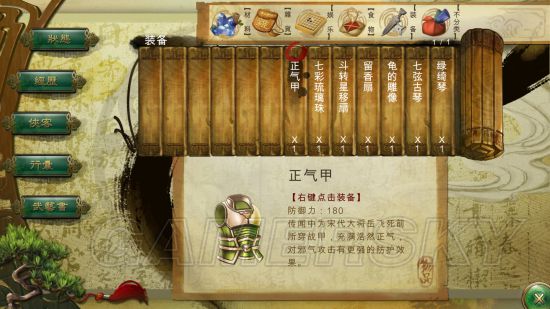 【材料】
【雜貨】
【娱乐】
【食物】
【装备】
【不分类】
装备
1/1
狀態
經歷
俠客
行囊
武藝書
正气甲 X1
七彩琉璃珠 X1
斗转星移扇 X1
留香扇 X1
龟的雕像 X1
七弦古琴 X1
绿绮琴 X1
正气甲
【右键点击装备】
防御力：180
传闻中为宋代大将岳飞死前
所穿战甲，充满浩然正气，
对邪气攻击有更强的防护效
果。
物品
GAMERSKY